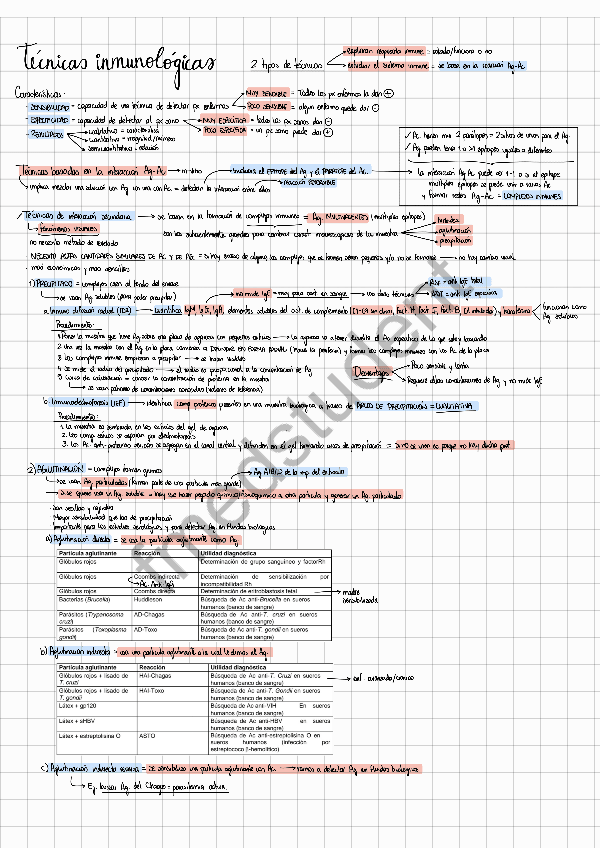 Técnicas inmunológicas
2 tipos de técnicas
exploran respuesta inmune = celado/funciona o no
estudiar el sistema inmune = se basa en la reacción Ag-Ac
Características:
- SENSIBILIDAD = capacidad de una técnica de detectar px enfermos
MUY SENSIBLE = Todos los px enfermos la dan +
POCO SENSIBLE = algún enfermo puede dar -
- ESPECIFICIDAD = capacidad de detectar al px sano
MUY ESPECÍFICA = todos los px sanos dan -
POCO ESPECÍFICA = un px sano puede dar +
- RESULTADOS
cualitativa = característica
cuantitativa = magnitud/números
semicuantitativa = relación
✓ Ac tienen min 2 parátopos = 2 sitios de unión para el Ag.
✓ Ag pueden tener 1 o >1 epítopos iguales o diferentes
La interacción Ag-Ac puede ser 1-1 o si el epítope
múltiples epítopos se puede unir a varios Ac
y formar redes Ag-Ac = COMPLEJOS INMUNES
Técnicas basadas en la interacción Ag-Ac → in vitro
Involucra el EPÍTOPE del Ag y el PARÁTOPE del Ac.
reacción REVERSIBLE
implica mezclar una solución con Ag con una con Ac = detectan la interacción entre ellos
Técnicas de interacción secundaria → se basan en la formación de complejos inmunes = Ag. MULTIVALENTES (múltiples epítopos)
fenómenos visibles
son los suficientemente grandes para cambiar caract. macroscópicas de la muestra
turbidez
aglutinación
precipitación
no necesito método de revelado
NECESITO ALTAS CANTIDADES SIMILARES DE AC Y DE AG. = si hay exceso de alguno los complejos que se forman serán pequeños y/o no se formarán → no hay cambio visual
- más económicas y más sencillas
1) PRECIPITADO = complejos caen al fondo del envase
→ se usan Ag solubles (para poder precipitar)
no mide IgE → muy poca cant. en sangre → usa otras técnicas
RIST = ant. IgE total
RAST = ant. IgE específica
a. Inmuno difusión radial (IDR) → cuantifica IgM, IgG, IgA, elementos solubles del sist. de complemento
funcionan como
Ag solubles
Procedimiento:
1 Poner la muestra que tiene Ag sobre una placa de agarosa con pequeños orificios
2 Una vez la muestra con el Ag en la placa, comienza a DIFUNDIR EN FORMA RADIAL
3 Los complejos inmunes empiezan a precipitar → se hacen visibles
4 Se mide el radio del precipitado → el radio es proporcional a la concentración de Ag
5 Curva de calibración = conocer la concentración de proteína en la muestra
→ se usan patrones de concentraciones conocidas (valores de referencia)
Desventajas
Poco sensible y lenta
Requiere altas concentraciones de Ag y no mide IgE
b. Inmunoelectroforesis (IEF) → identifica como proteínas presentes en una muestra biológica a través de ARCOS DE PRECIPITACIÓN = CUALITATIVA
Procedimiento:
1. La muestra es sembrada en los orificios del gel de agarosa
2. Los comp. séricos se separan por electroforesis
3. Los Ac anti-proteínas séricas se agregan en el canal central y difunden en el gel formando arcos de precipitación = si no se ven es porque no hay dicha prot.
2) AGLUTINACIÓN = complejos forman grumos
→ se usan Ag particulados (forman parte de una partícula más grande)
Ag A/B/D de la mp del eritrocito
→ si se quiere usar Ag soluble = hay que hacer pegado químico/inmunoquímico a otra partícula y generar un Ag particulado
- Son sencillas y rápidas
- Mayor sensibilidad que las de precipitación
- Importante para los estudios serológicos y para detectar Ag en fluidos biológicos
a) Aglutinación directa = se usa la partícula aglutinante como Ag
Partícula aglutinante Reacción Utilidad diagnóstica
Glóbulos rojos Determinación de grupo sanguíneo y factorRh
Glóbulos rojos Coombs indirecta Determinación de sensibilización por incompatibilidad Rh
Ac. Anti IgG
Glóbulos rojos Coombs directa Determinación de eritroblastosis fetal
madre
sensibilizada
Bacterias (Brucella) Huddleson Búsqueda de Ac anti-Brucella en sueros humanos (banco de sangre)
Parásitos (Trypanosoma cruzi) AD-Chagas Búsqueda de Ac anti-T. cruzi en sueros humanos (banco de sangre)
Parásitos (Toxoplasma gondii) AD-Toxo Búsqueda de Ac anti-T. gondii en sueros humanos (banco de sangre)
b) Aglutinación indirecta = usa una partícula aglutinante a la cual le unimos el Ag.
Partícula aglutinante Reacción Utilidad diagnóstica
Glóbulos rojos + lisado de T. cruzi HAI-Chagas Búsqueda de Ac anti-T. Cruzi en sueros humanos (banco de sangre)
Glóbulos rojos + lisado de T. gondii HAI-Toxo Búsqueda de Ac anti-T. Gondii en sueros humanos (banco de sangre)
Látex + gp120 Búsqueda de Ac anti-VIH En sueros humanos (banco de sangre)
Látex + sHBV Búsqueda de Ac anti-HBV en sueros humanos (banco de sangre)
Látex + estreptolisina O ASTO Búsqueda de Ac anti-estreptolisina O en sueros humanos (infección por estreptococo β-hemolítico)
c) Aglutinación indirecta reversa = se sensibiliza una partícula aglutinante con Ac. → vamos a detectar Ag en fluidos biológicos
→ Ej. buscar Ag. del Chagas = parasitemia activa.
tmedstudent